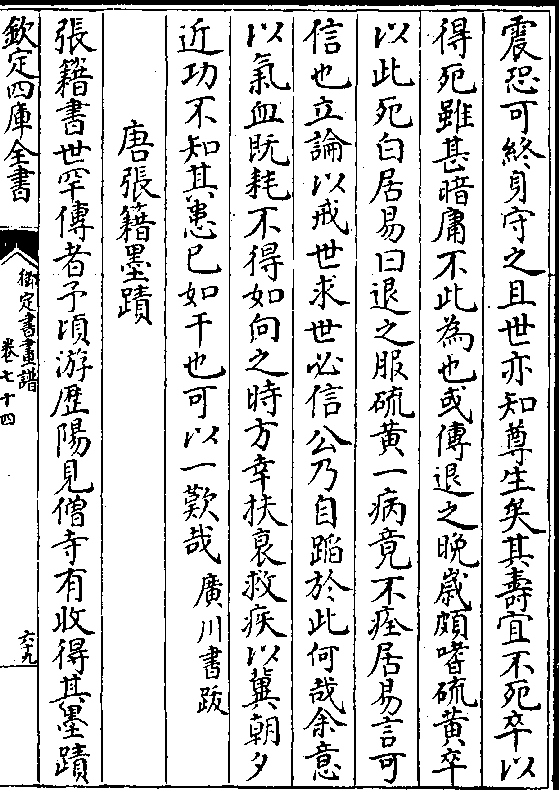 震恐可終身守之且世亦知尊生矣其壽宜不死卒以
得死雖甚暗庸不此為也或傳退之晚嵗頗嗜硫黃卒
以此死白居易曰退之服硫黃一病竟不痊居易言可
信也立論以戒世求世必信公乃自蹈於此何哉余意
以氣血既耗不得如向之時方幸扶衰救疾以冀朝夕
近功不知其患已如干也可以一歎哉 廣川書跋
唐張籍墨蹟
張籍書世罕傳者予頃游歴陽見僧寺有收得其墨蹟
欽定四庫全書
御定書畫譜
卷七十四
六九